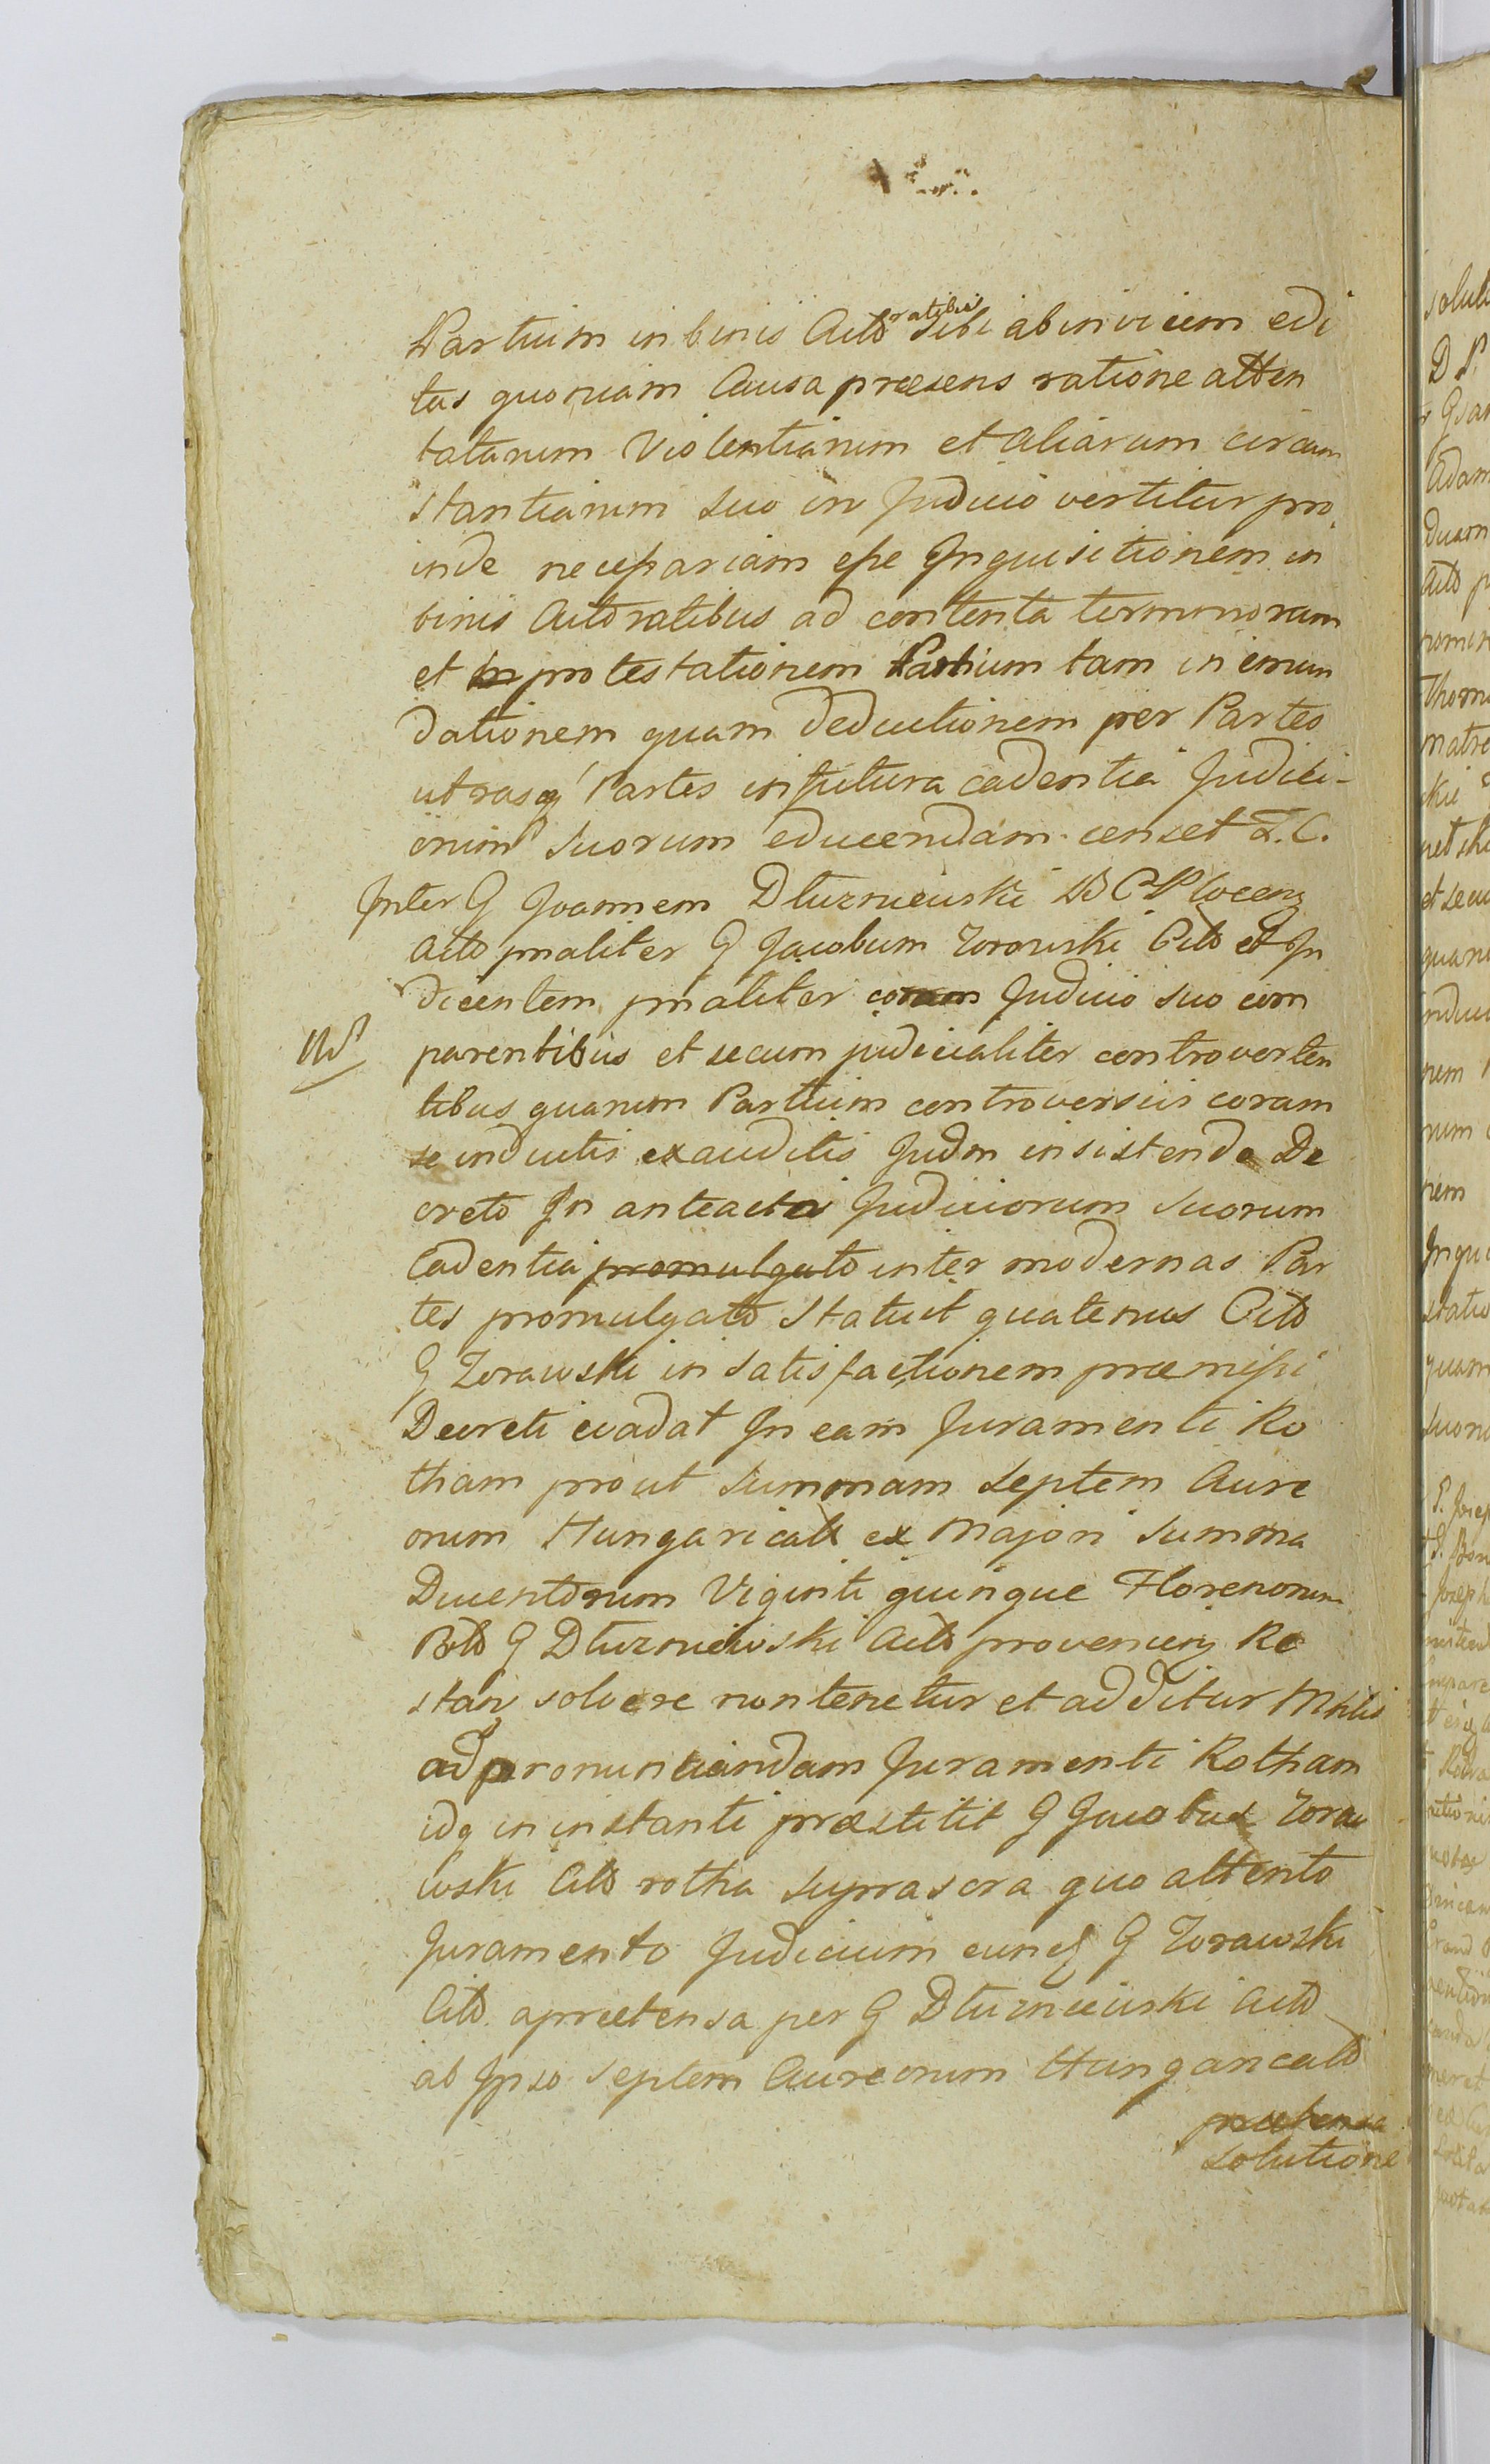 Partium in binis Actoratibus sibi ab invicem edi
tas quoniam Causa præsens ratione atten
tatarum Violentiarum et aliarum circum
stantiarum suo in Judicio vertitur pro
inde necessariam esse Inquisitionem in
binis Actoratibus ad contenta terminorum
et protestationem Partium tam in emun
dationem quam deductionem per Partes
utrasq Partes in futura cadentia Judici-
orum suorum educendam censet L.C.
Inter G Joannem Dłuzniewski B C P
Acto pnaliter G Jacobum Zorawski Cito et In
dicentem pnaliter coram Judicio suo com
parentibus et secum judicialiter controverten
tibus quarum Partium controversiis coram
se inductis exauditis Judm insistendo De
creto In anteacta Judiciorum suorum
Cadentia promulgato inter modernas Par
tes promulgato statuit quatenus Cito
G Zorawski in satisfactionem præmissi
Decreti evadat In eam Juramenti Ro
tham prout summam septem Aure
orum Hungarical ex majori summa
Ducentorum Viginti quinque Florenorum
Polo G Dłuzniewski Acto provenien Re
stan solvere non tenetur et additur Mnlis
ad pronunciandam Juramenti Rotham
idq in instanti præstitit G Jacobus Zora
wski Cito rotha suprascra quo attento
Juramento Judicium eund G Zorawski
Cito a prætensa per G Dłuzniewski Acto
ab Ipso septem Aureorum Hungaricalo
prætensa
solutione